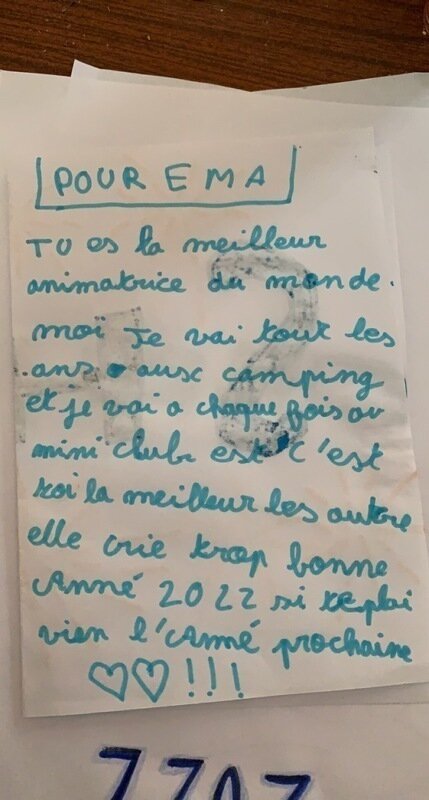 POUR EMA
TU es la meilleur
animatrice du monde.
moi Je vai tout les
ans aux camping
et je vai a chaque fois au
mini club est c'est
toi la meilleur les autre
elle crie trop bonne
Anné 2022 si te plai
vien l'anné prochaine
♡♡!!!